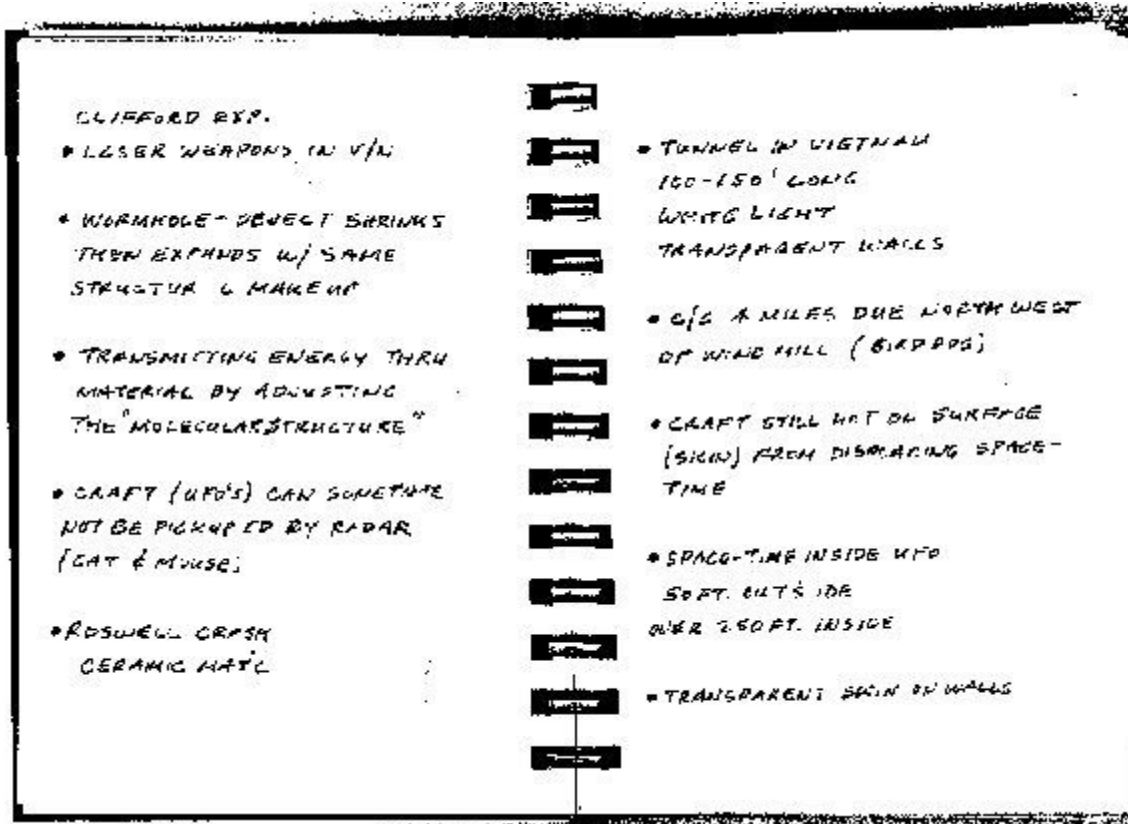 CLIFFORD EXP.
• LASER WEAPONS IN V/N
• WORMHOLE - OBJECT SHRINKS
THEN EXPANDS W/ SAME
STRUCTUR & MAKEUP
• TRANSMITTING ENERGY THRU
MATERIAL BY ADJUSTING
THE "MOLECULAR STRUCTURE"
• CRAFT (UFO'S) CAN SOMETIME
NOT BE PICKUP ED BY RADAR
(CAT & MOUSE)
• ROSWELL CRASH
CERAMIC MAT'L
• TUNNEL IN VIETNAM
100-150' LONG
WHITE LIGHT
TRANSPARENT WALLS
• 4 MILES DUE NORTH WEST
OF WIND MILL (BIRD DOG)
• CRAFT STILL HOT ON SURFACE
(SKIN) FROM DISPLACING SPACE-
TIME
• SPACE-TIME INSIDE UFO
50 FT. OUTSIDE
OVER 250 FT. INSIDE
• TRANSPARENT SKIN ON WALLS